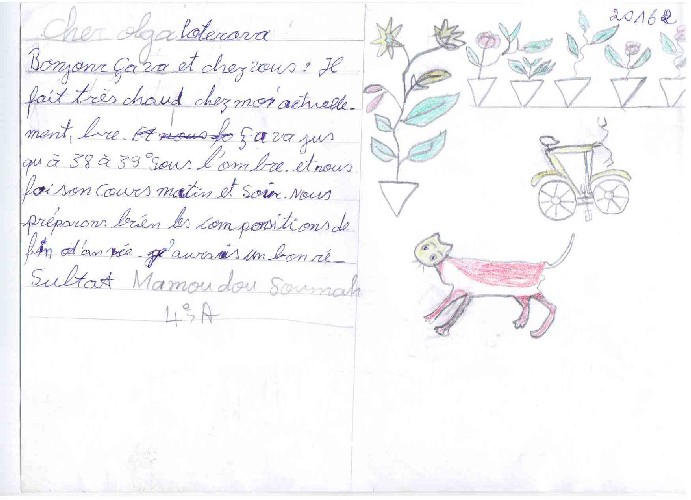 Cher olga loterova
Bonjour Ça va et chez vous? Il
fait très chaud chez moi actuelle-
ment, livre. Et nous fo Ça va jus
qu à 38 à 39° sous l'ombre. et nous
foison cours matin et soir. Nous
préparons brien les compositions de
fin d'année. j'aurais un bon ré-
sultat Mamoudou Soumah
4e A
2016